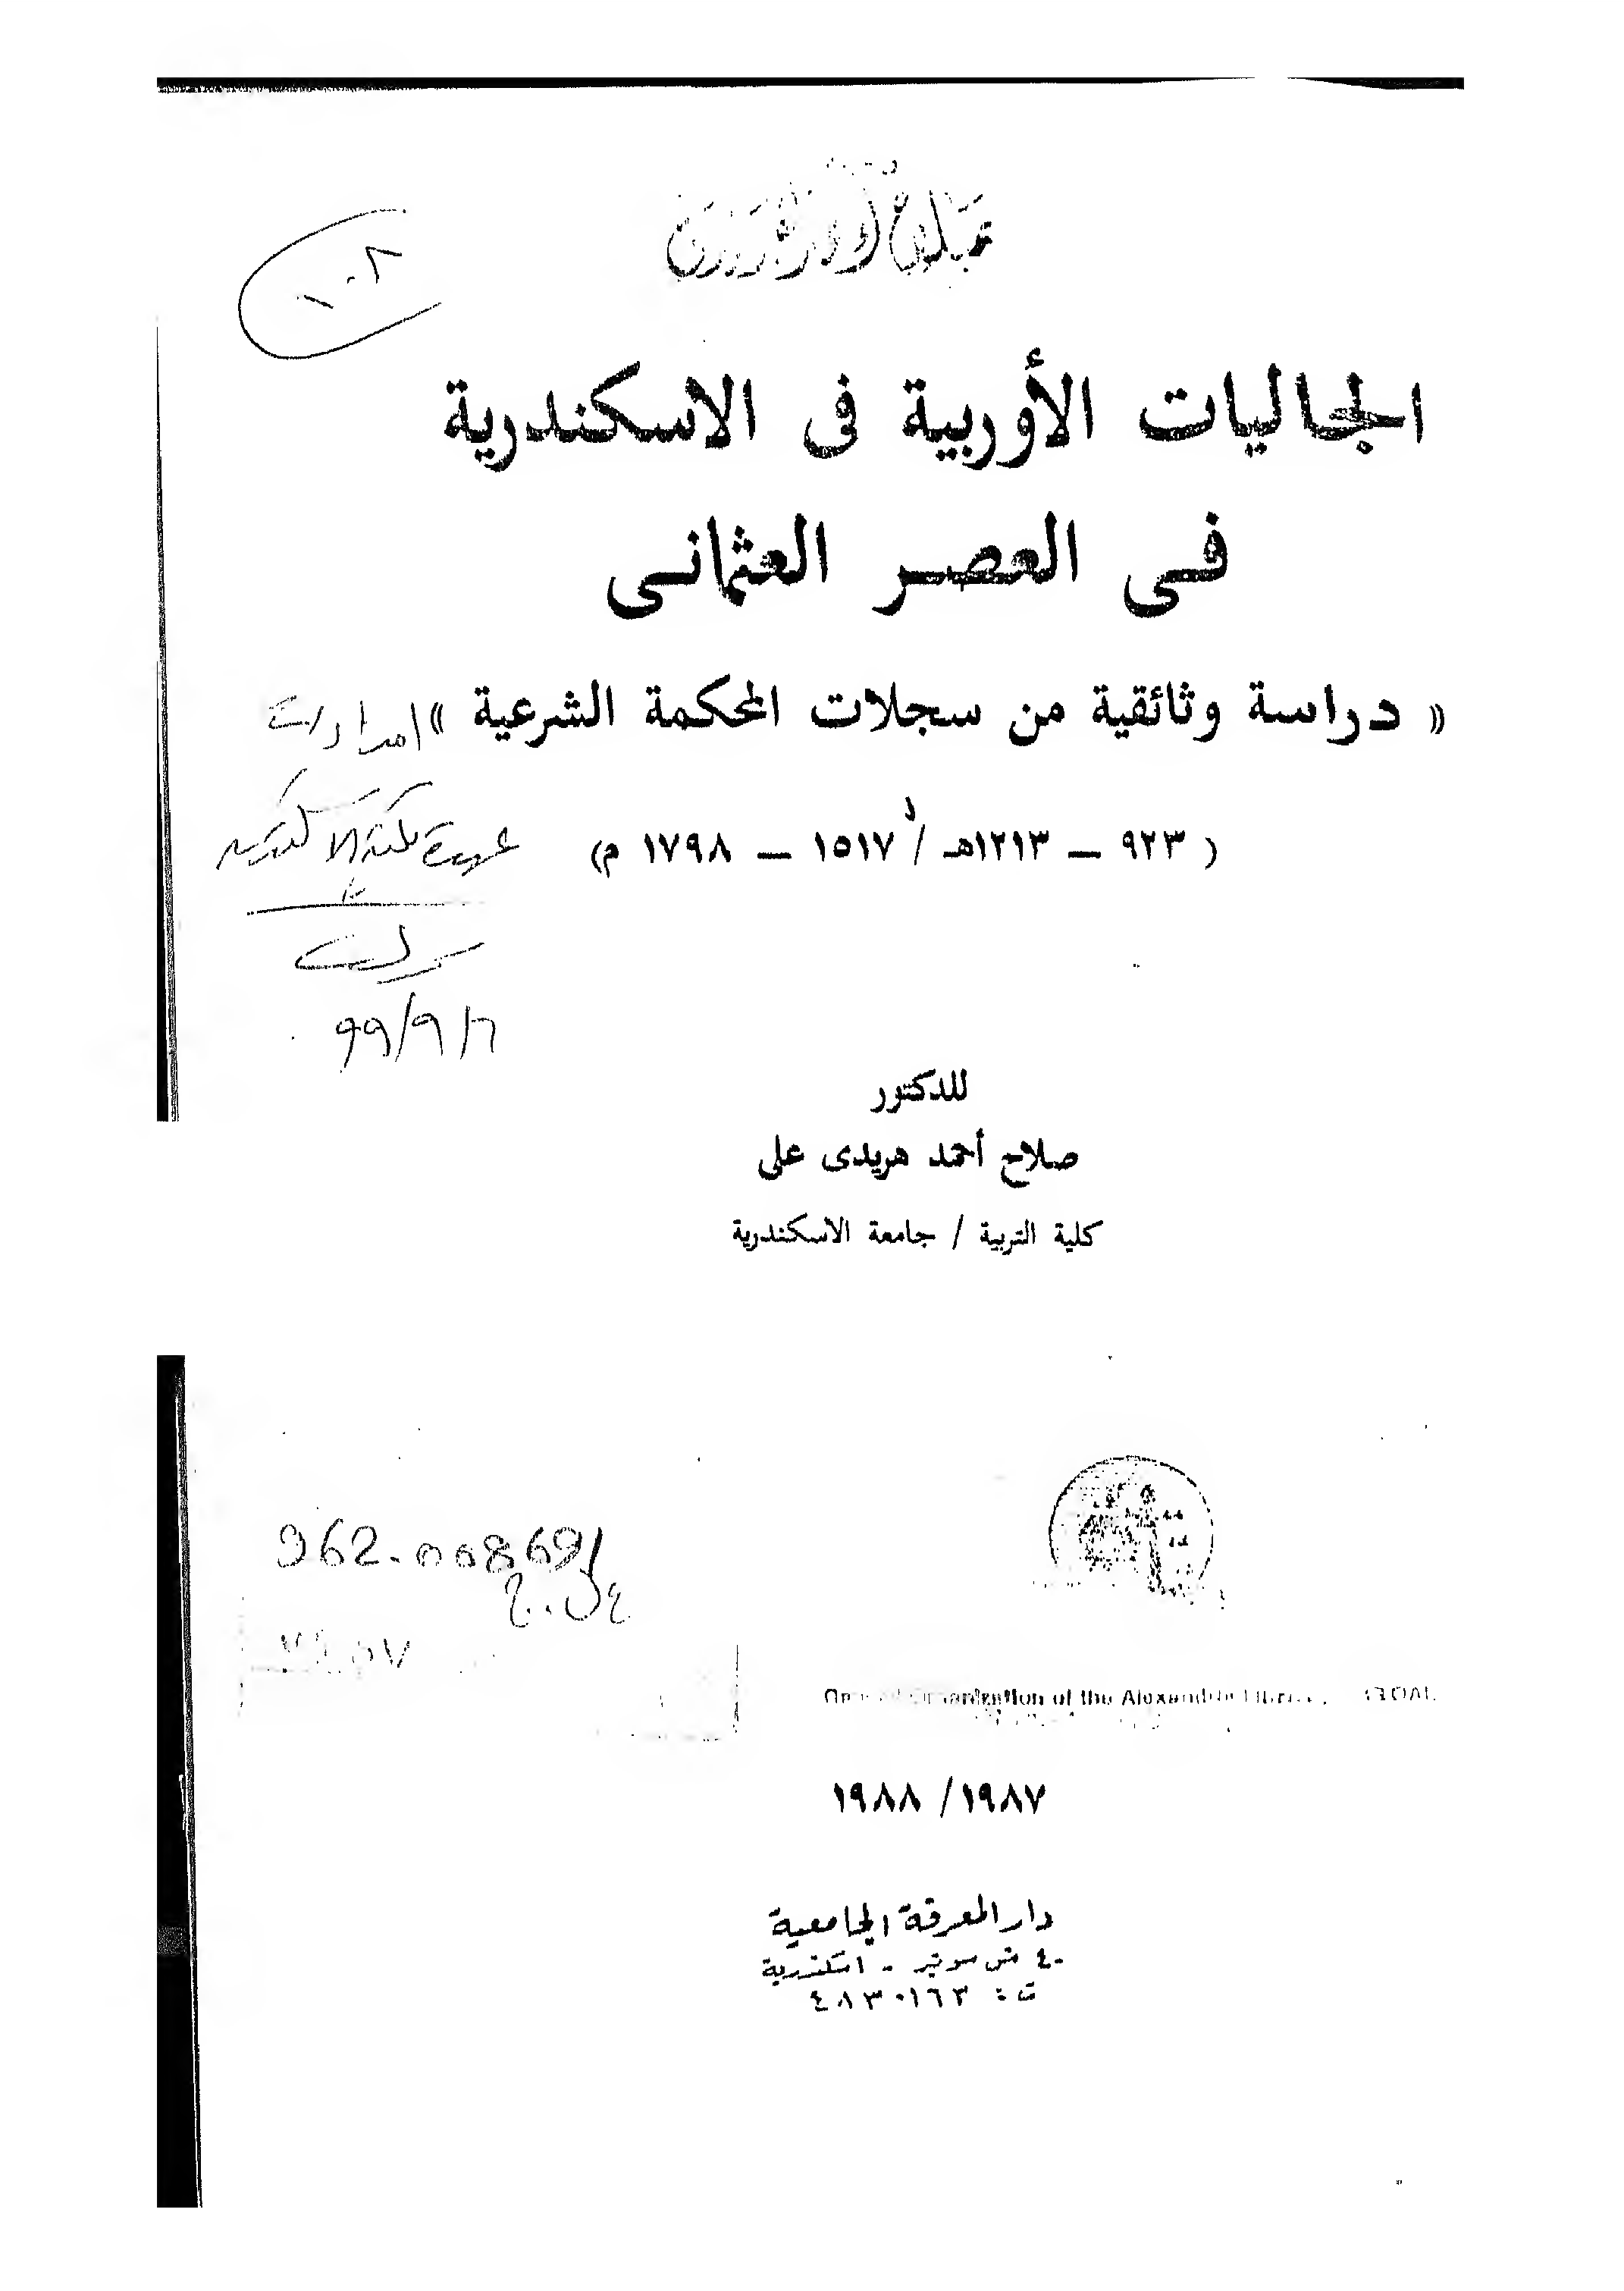 ١٠٨
الجاليات الأوربية فى الاسكندرية
فى العصر العثمانى
« دراسة وثائقية من سجلات المحكمة الشرعية »
( ٩٢٣ – ١٢١٣هـ / ١٥١٧ – ١٧٩٨ م)
٩٩/٩/٦
للدكتور
صلاح أحمد هريدى على
كلية التربية / جامعة الاسكندرية
962.008691
Organization of the Alexandria
١٩٨٧/ ١٩٨٨
دار المعرفة الجامعية
٤٠ ش سوتير - اسكندرية
ت : ٤٨٣٠١٦٣